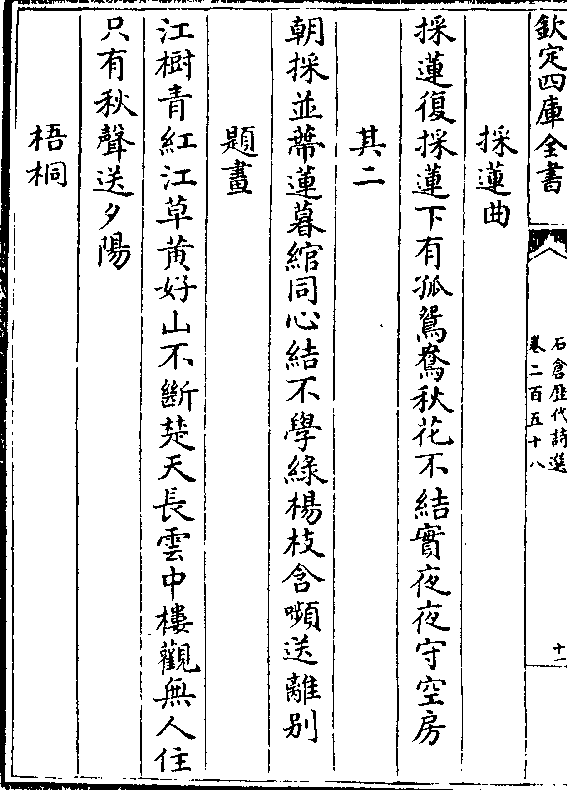 欽定四庫全書
石倉歷代詩選
卷二百五十八
十一
採蓮曲
採蓮復採蓮下有孤鴛鴦秋花不結實夜夜守空房
其二
朝採並蔕蓮暮綰同心結不學綠楊枝含嚬送離别
題畫
江樹青紅江草黄好山不斷楚天長雲中樓觀無人住
只有秋聲送夕陽
梧桐